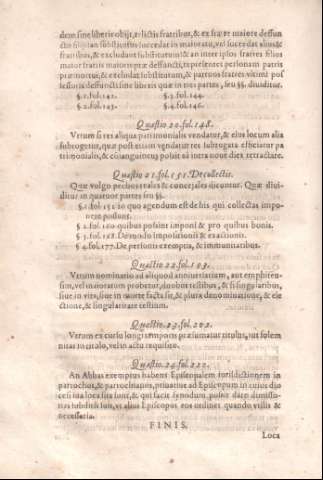 dem sine liberis obijt, relictis fratribus, & ex fratre maiore defun
cto filij an substitutus succedat in maioratu, vel succedat alius &
fratribus, & excludunt substitutum? & an inter ipsos fratres filius
maior fratris maioris præ defuncti, repræsentet personam patris
præmortui, & excludat substitutum, & patruos fratres vltimi pos
sessoris defuncti sine liberis quæ in tres partes, seu §§. diuiditur.
§. 1. fol. 142. §. 3. fol. 144.
§. 2. fol. 143. §. 4. fol. 146.
Quæstio 20. fol. 148.
Vtrum si res aliqua patrimonialis vendatur, & eius locum alia
subrogetur, quæ post etiam vendatur res subrogata efficiatur pa
trimonialis, & consanguineus possit ab intra nouè dies retractare.
Quæstio 21. fol. 151. De collectis.
Quæ vulgo pechos reales & concejales dicuntur. Quæ diui
ditur in quatuor partes seu §§.
§. 1. fol. 151. in quo agendum est de his qui collectas impo
nere possunt.
§. 2. fol. 160. quibus possint imponi & pro quibus bonis.
§. 3. fol. 168. De modo impositionis & exactionis.
§. 4. fol. 177. De personis exemptis, & immunitatibus.
Quæstio. 22. fol. 193.
Vtrum nominatio ad aliquod anniuersarium, aut emphiteu-
sim, vel in maioratum probetur, duobus testibus, & si singularibus,
siue in vita, siue in morte facta sit, & plura denominatione, & ele
ctione, & singularitate testium.
Quæstio. 23. fol. 202.
Vtrum ex cursu longi temporis præsumatur titulus, aut solem
nitas in titulo, vel in actu requisito.
Quæstio. 24. fol. 222.
An Abbas exemptus habens Episcopalem iurisdictionem in
parrochos, & parrochianos, priuatiue ad Episcopum in cuius dio
cesi ina loca sita sunt, & qui facit synodum possit dare dimisso-
rias subditis suis, vt alius Episcopus eos ordinet quando vtilis &
necessaria.
FINIS.
Loca